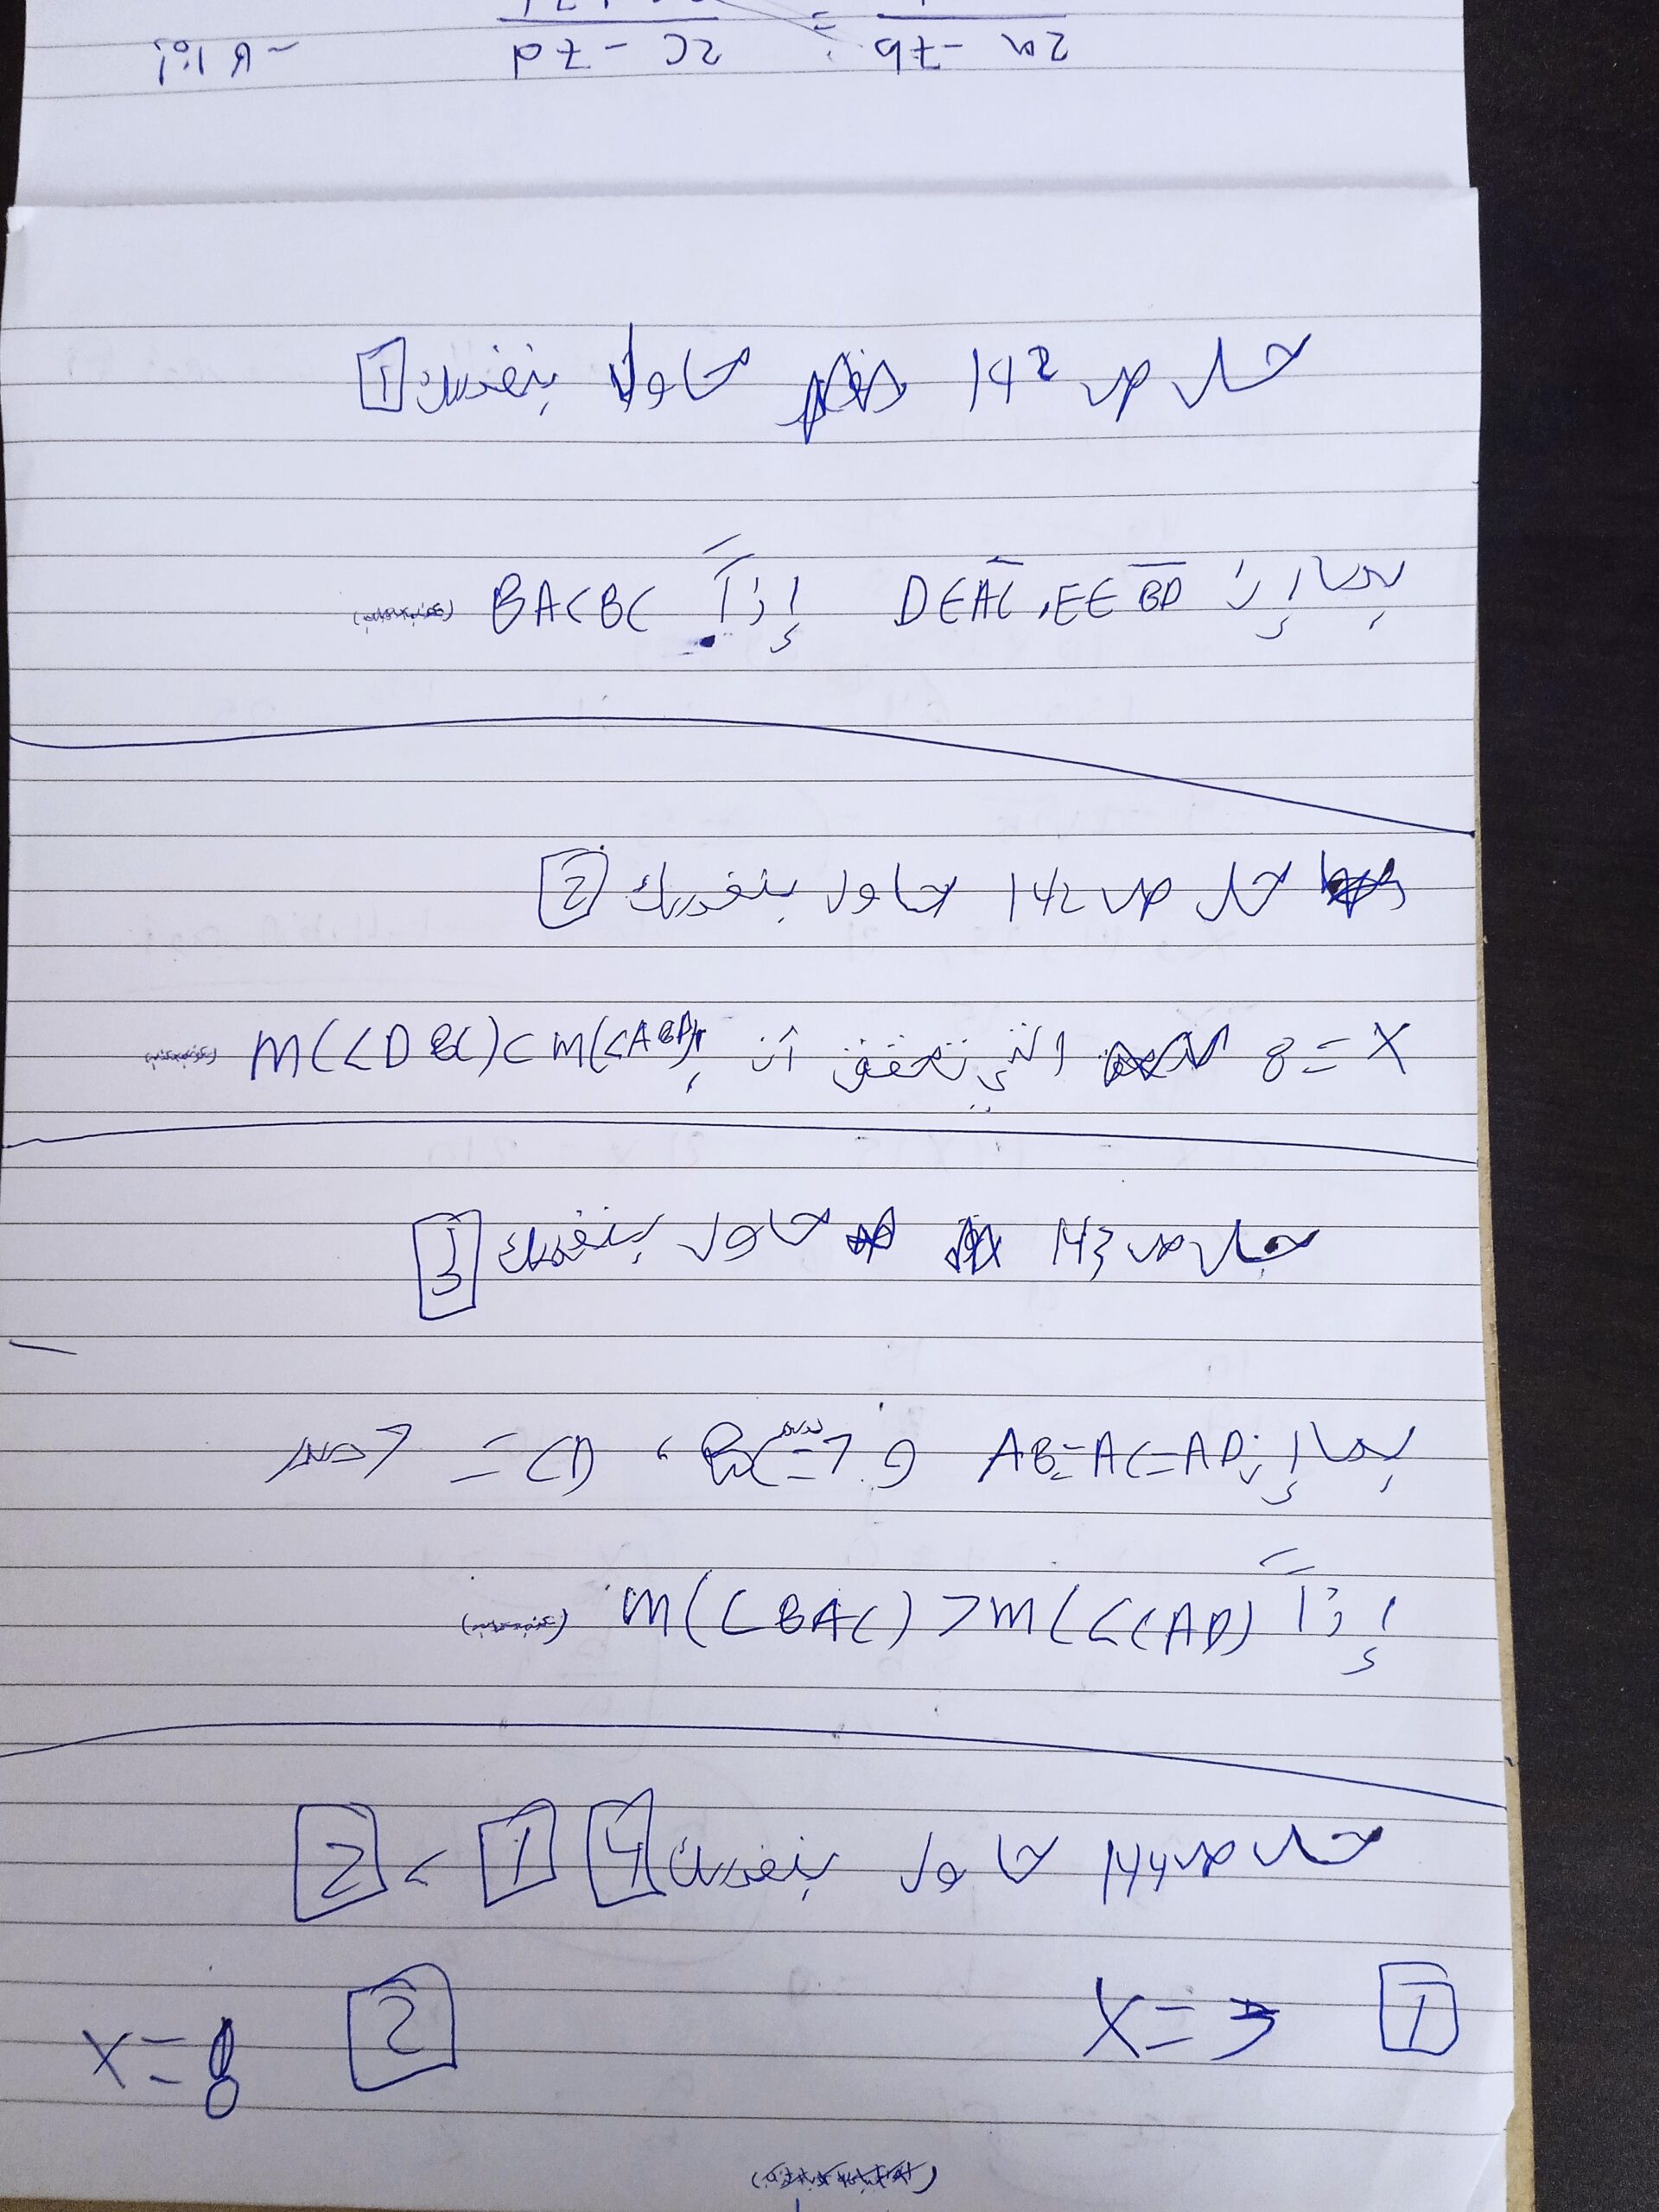 2a - 7b = 2c - 7d
حل ص 142 حاول بنفسك 1
بما إن D∈AC , E∈BD إذاً BA<BC
حل ص 142 حاول بنفسك 2
X = 8 التي تحقق أن m(<DBC)<m(<ABD)
حل ص 143 حاول بنفسك 3
بما إن AB=AC=AD و BC=7سم ، CD = 6سم
إذاً m(<BAC) > m(<CAD)
حل ص 144 حاول بنفسك 4 1 ، 2
1 X = 3 2 X = 8